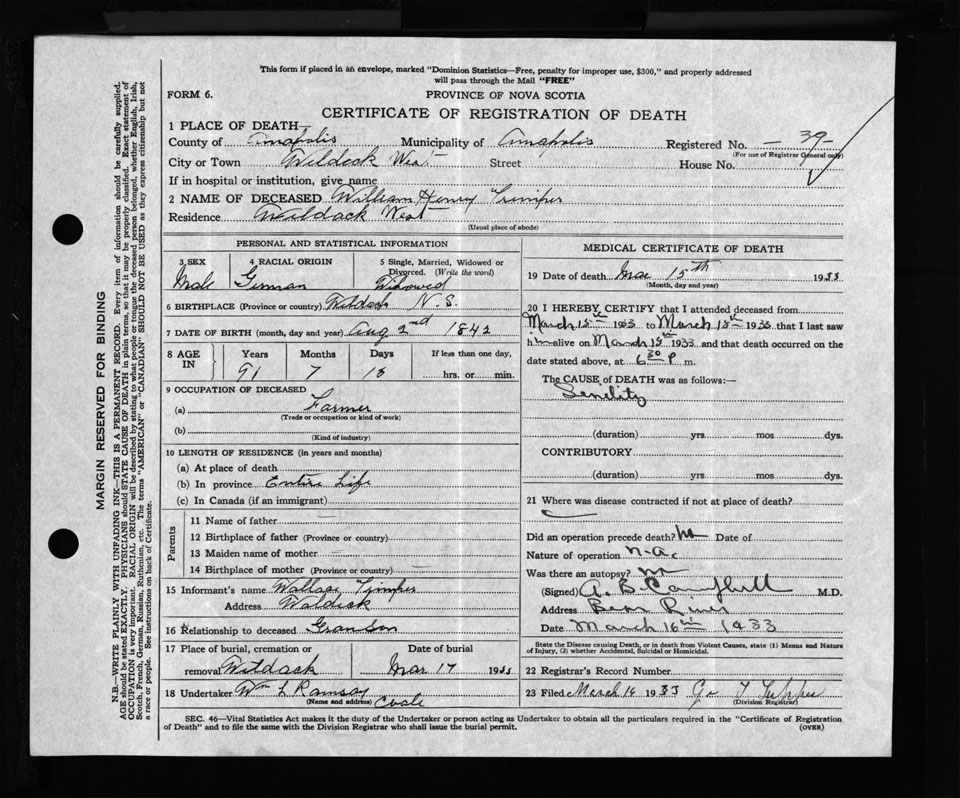 This form if placed in an envelope, marked "Dominion Statistics—Free, penalty for improper use, $300," and properly addressed
will pass through the Mail "FREE"
FORM 6.
PROVINCE OF NOVA SCOTIA
CERTIFICATE OF REGISTRATION OF DEATH
1 PLACE OF DEATH—
County of Annapolis Municipality of Annapolis Registered No. — 39 —
(For use of Registrar General only)
City or Town Wildeck West Street House No.
If in hospital or institution, give name
2 NAME OF DECEASED William Henry Trimper
Residence Waildack West
(Usual place of abode)
PERSONAL AND STATISTICAL INFORMATION
3 SEX 4 RACIAL ORIGIN 5 Single, Married, Widowed or
Divorced. (Write the word)
Male German Widowed
6 BIRTHPLACE (Province or country) Wildack N.S.
7 DATE OF BIRTH (month, day and year) Aug 2nd 1842
8 AGE IN Years Months Days If less than one day,
91 7 15 hrs. or min.
9 OCCUPATION OF DECEASED
(a) Farmer
(Trade or occupation or kind of work)
(b)
(Kind of industry)
10 LENGTH OF RESIDENCE (in years and months)
(a) At place of death
(b) In province Entire Life
(c) In Canada (if an immigrant)
Parents
11 Name of father
12 Birthplace of father (Province or country)
13 Maiden name of mother
14 Birthplace of mother (Province or country)
15 Informant's name Wallace Trimper
Address Waldick
16 Relationship to deceased Granson
17 Place of burial, cremation or Date of burial
removal Wildack Mar 17 1933
18 Undertaker Wm L Ramsay
(Name and address)
MEDICAL CERTIFICATE OF DEATH
19 Date of death Mar 15th 1933
(Month, day and year)
20 I HEREBY CERTIFY that I attended deceased from
March 15th 1933 to March 15th 1933 that I last saw
him alive on March 15th 1933 and that death occurred on the
date stated above, at 6 30 P m.
The CAUSE of DEATH was as follows:—
Senelity
(duration) yrs mos dys.
CONTRIBUTORY
(duration) yrs mos dys.
21 Where was disease contracted if not at place of death?
Did an operation precede death? No Date of
Nature of operation n.a.
Was there an autopsy? no
(Signed) A. B. Campbell M.D.
Address Bear River
Date March 16th 1933
State the Disease causing Death, or in death from Violent Causes, state (1) Means and Nature
of Injury, (2) whether Accidental, Suicidal or Homicidal.
22 Registrar's Record Number
23 Filed March 16 1933 Geo T Tupper
(Division Registrar)
SEC. 46—Vital Statistics Act makes it the duty of the Undertaker or person acting as Undertaker to obtain all the particulars required in the "Certificate of Registration
of Death" and to file the same with the Division Registrar who shall issue the burial permit. (OVER)
MARGIN RESERVED FOR BINDING
N.B.—WRITE PLAINLY WITH UNFADING INK—THIS IS A PERMANENT RECORD. Every item of information should be carefully supplied.
AGE should be stated EXACTLY. PHYSICIANS should STATE CAUSE OF DEATH in plain terms, so that it may be properly classified. Exact statement of
OCCUPATION is very important. RACIAL ORIGIN will be described by stating to what people or tongue the deceased person belonged, whether English, Irish,
Scotch, French, German, Russian, Ruthenian, etc. The terms "AMERICAN" or "CANADIAN" SHOULD NOT BE USED as they express citizenship but not
a race or people. See instructions on back of Certificate.